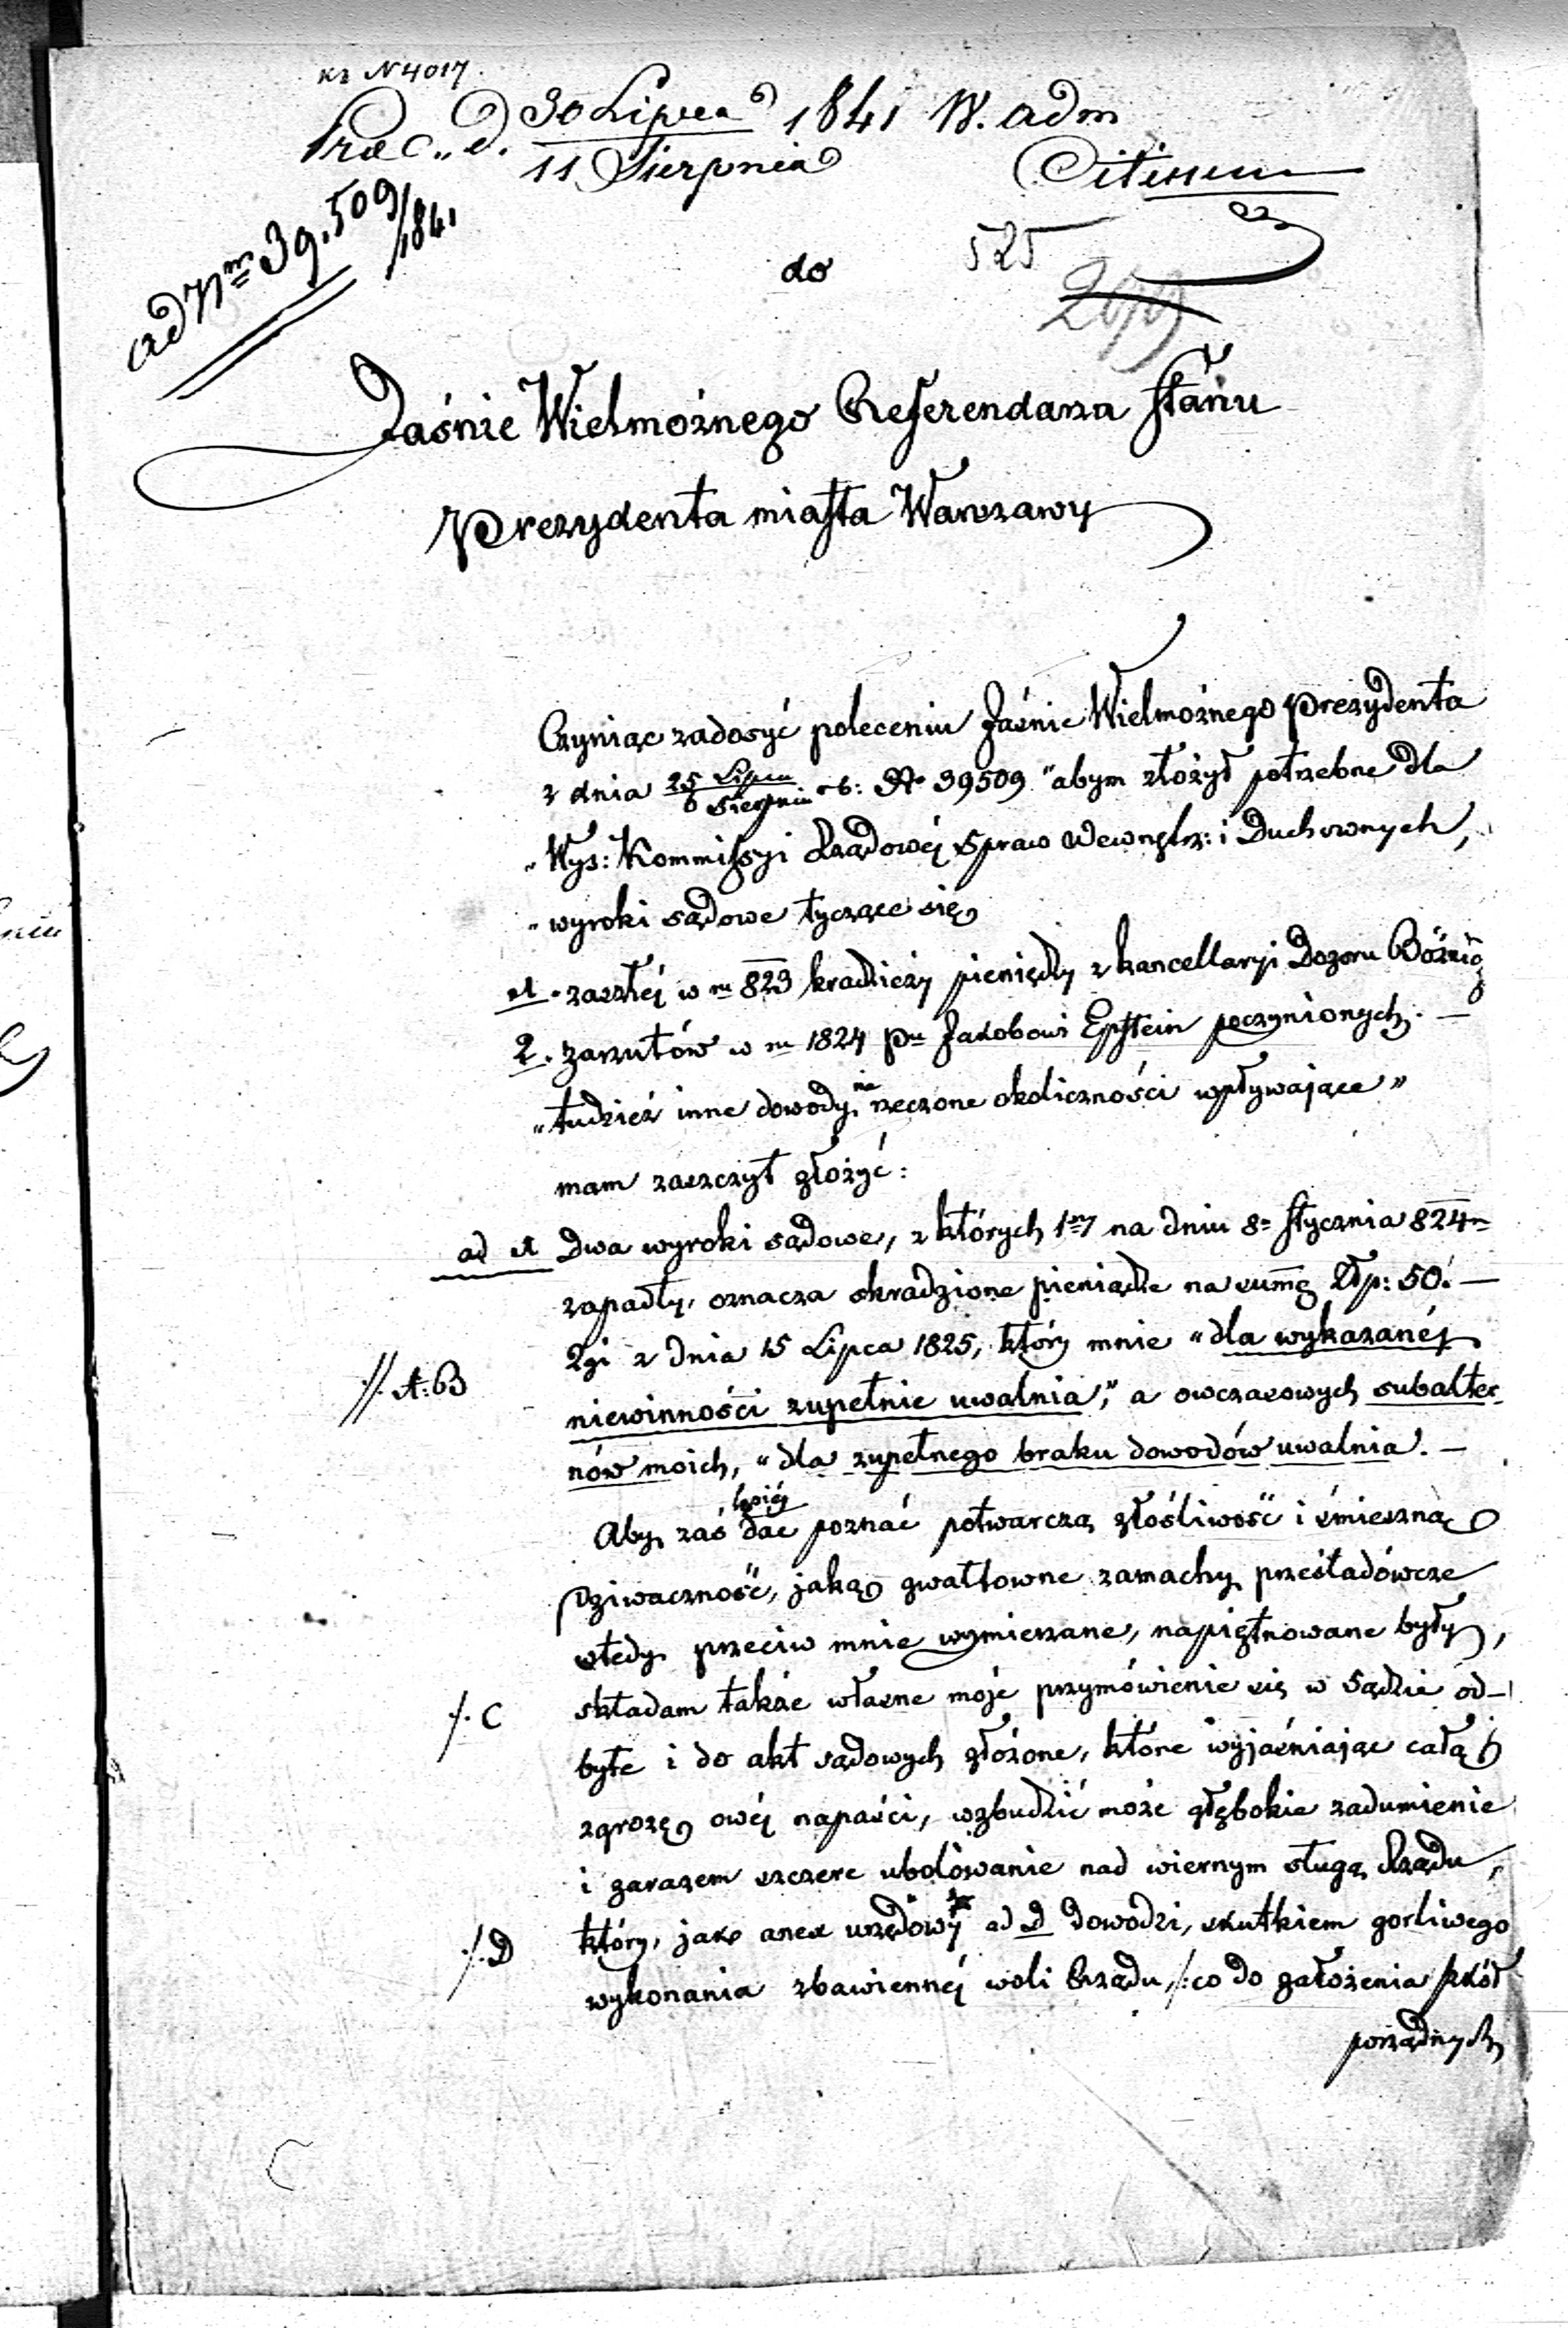 кз N 4017.
Prae. d. 30 Lipca / 11 Sierpnia 1841 W. adm
Citissime
ad Nm 39.509/1841
do
525
Jaśnie Wielmożnego Referendarza Stanu
Prezydenta miasta Warszawy
Czyniąc zadosyć poleceniu Jaśnie Wielmożnego Prezydenta
z dnia 25 Lipca / 6 Sierpnia rb: No 39509 "abym złożył potrzebne dla
„Wys: Kommissyi Rządowéj Spraw Wewnętrz: i Duchownych,
„wyroki sądowe tyczące się
1. zaszłéj w ru 823 kradzieży pieniędzy z kancellaryi Dozoru Bóżnic
2. zarzutów w ru 1824 Pu Jakobowi Epstein poczynionych. —
„tudzież inne dowody na rzeczone okoliczności wpływające"
mam zaszczyt złożyć:
ad 1 Dwa wyroki sądowe, z których 1szy na dniu 8o Stycznia 824ro
zapadły, oznacza skradzione pieniądze na summę Złp: 50. —
2gi z dnia 15 Lipca 1825, który mnie "dla wykazanéj
//. A: B
niewinności zupełnie uwalnia," a owczasowych subalter-
nów moich, "dla zupełnego braku dowodów uwalnia. —
Aby zaś lepiéj dać poznać potwarczą złośliwość i śmieszną
Dziwaczność, jaką gwałtowne zamachy prześladówcze
wtedy przeciw mnie wymierzane, napiętnowane były,
/. C
składam także własne moje przymówienie się w Sądzie od-
byte i do akt sądowych złożone, które wyjaśniając całą
zgrozę owéj napaści, wzbudzić może głębokie zadumienie
i zarazem szczere ubolówanie nad wiernym sługą Rządu,
/. D
który, jako anex urzędowy ad D dowodzi, skutkiem gorliwego
wykonania zbawiennéj woli Rządu, /: co do założenia szkół
porządnych